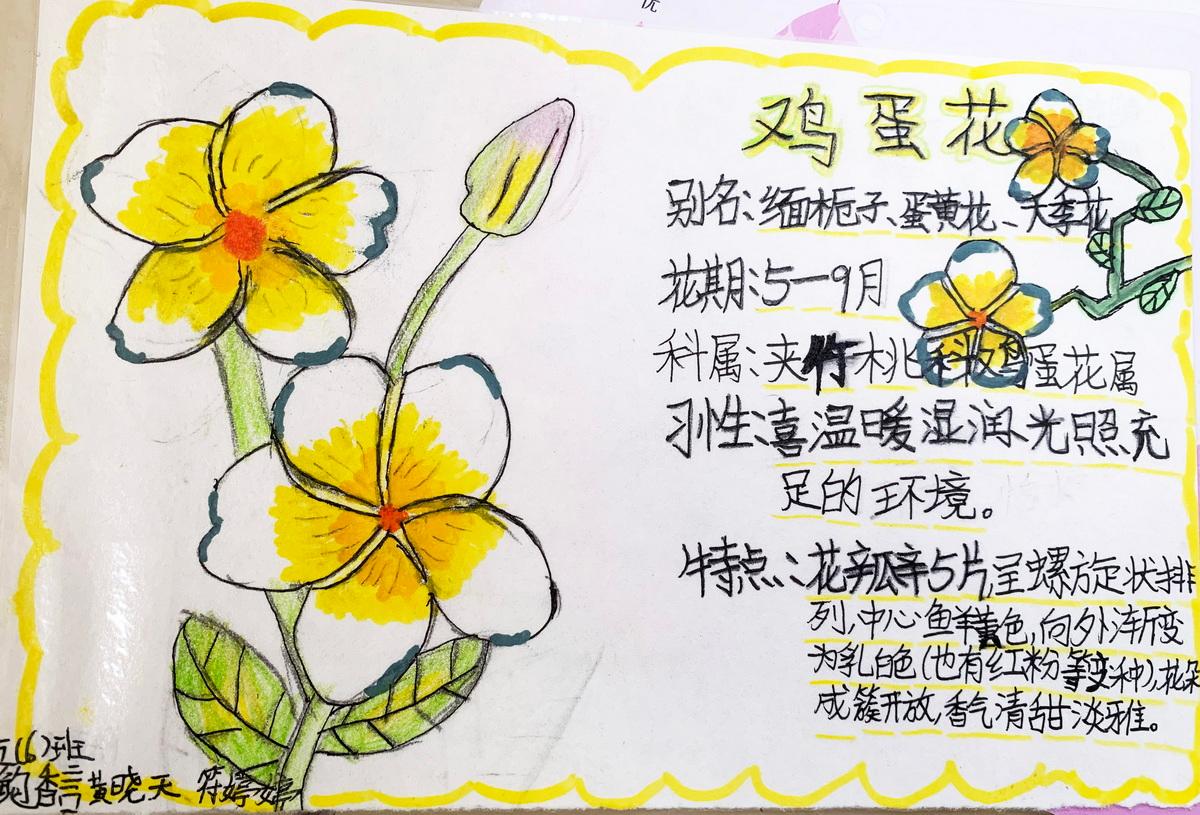 鸡蛋花
别名:缅栀子、蛋黄花、大季花
花期:5一9月
科属:夹竹桃科鸡蛋花属
习性:喜温暖湿润、光照充
足的环境。
特点:花瓣5片,呈螺旋状排
列,中心鲜黄色,向外渐变
为乳白色(也有红粉等变种),花朵
成簇开放,香气清甜淡雅。
(6)班
黄晓天 符婷婷